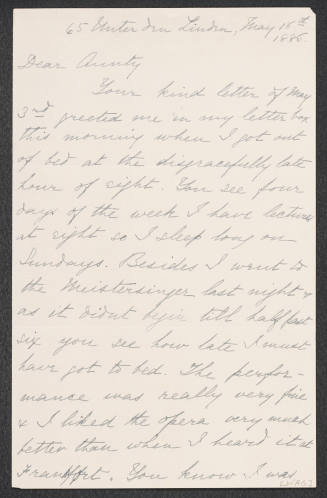 65 Unter den Linden, May 16th
1886.
Dear Aunty
Your kind letter of May
3rd greeted me in my letter box
this morning when I got out
of bed at the disgracefully late
hour of eight. You see four
days of the week I have lectures
at eight so I sleep long on
Sundays. Besides I went to
the Meistersinger last night &
as it didnt begin till half past
six you see how late I must
have got to bed. The perfor-
mance was really very fine
& I liked the opera very much
better than when I heard it at
Frankfort. You know I was